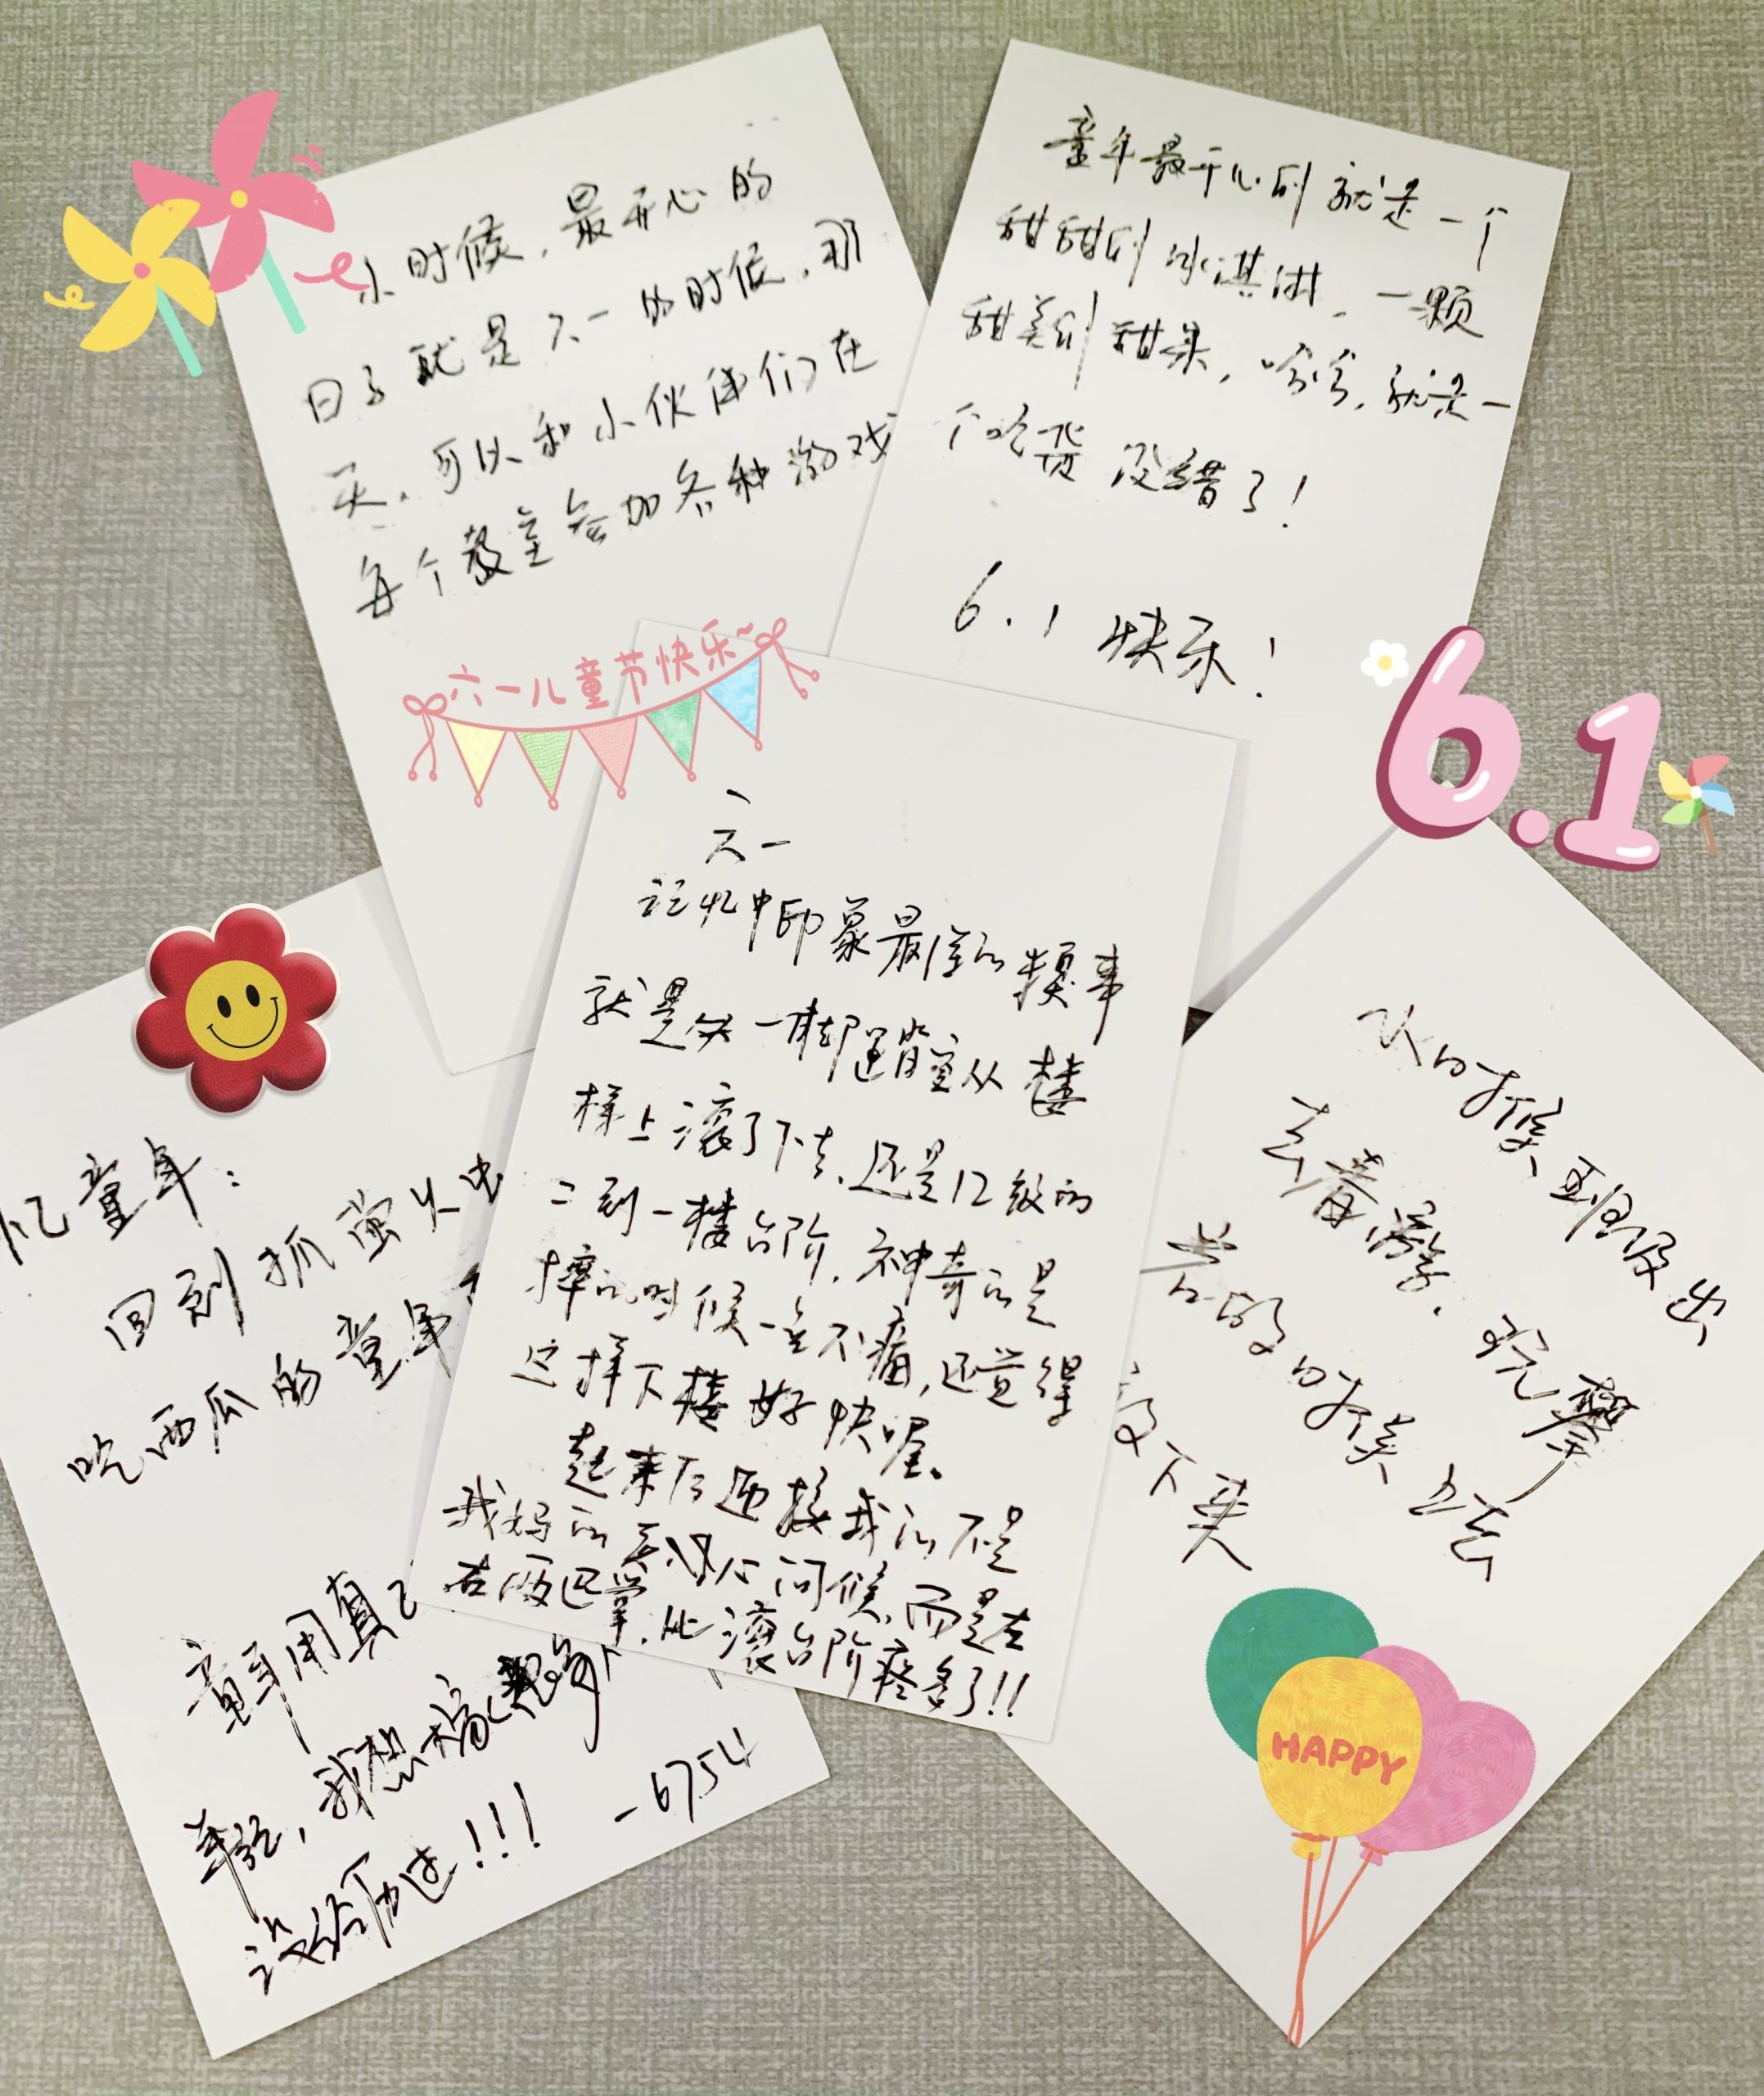 小时候，最开心的
日子就是六一的时候，那
天，可以和小伙伴们在
每个教室参加各种游戏
童年最开心的就是一个
甜甜的冰淇淋，一颗
甜美的甜果，哈哈，就是一
个吃货没错了！
6.1 快乐！
六一儿童节快乐~
6.1
六一
记忆中印象最深的糗事
就是我一脚踏空从楼
梯上滚了下去，还是12级的
二到一楼台阶，神奇的是
摔的时候一点不痛，还觉得
这样下楼好快喔。
起来后迎接我的不是
我妈的关心问候，而是左
右两巴掌，比滚台阶疼多了!!
忆童年：
回到抓萤火虫
吃西瓜的童年
童年用真
年轮，我想
没经历过!!!
-6754
小时候班级出
去春游，玩攀
岩的时候上去
下来
HAPPY